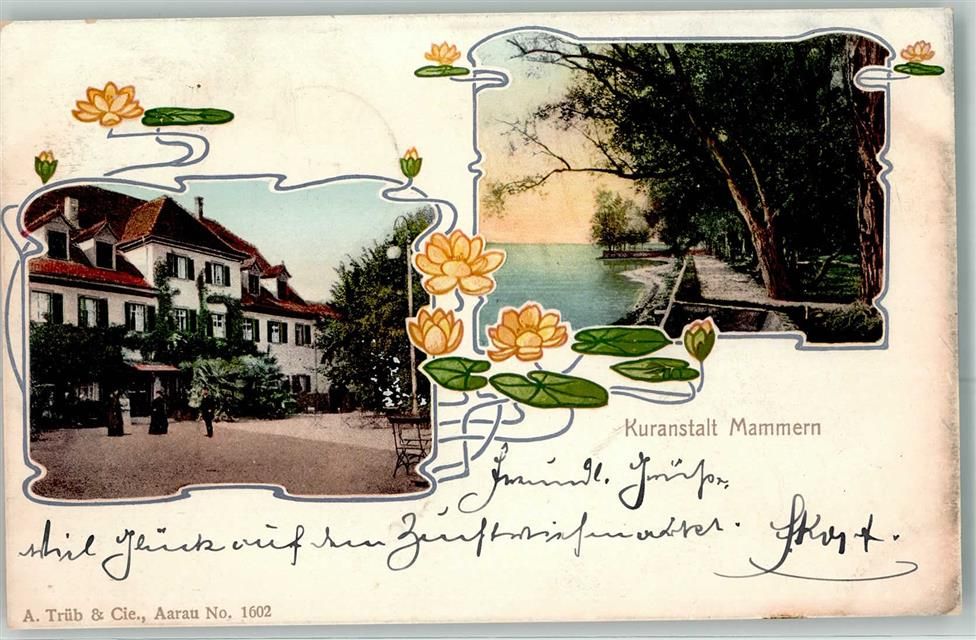 Kuranstalt Mammern
Freundl. Grüße.
Viel Glück auf dem Zuchtviehmarkte.
A. Trüb & Cie., Aarau No. 1602